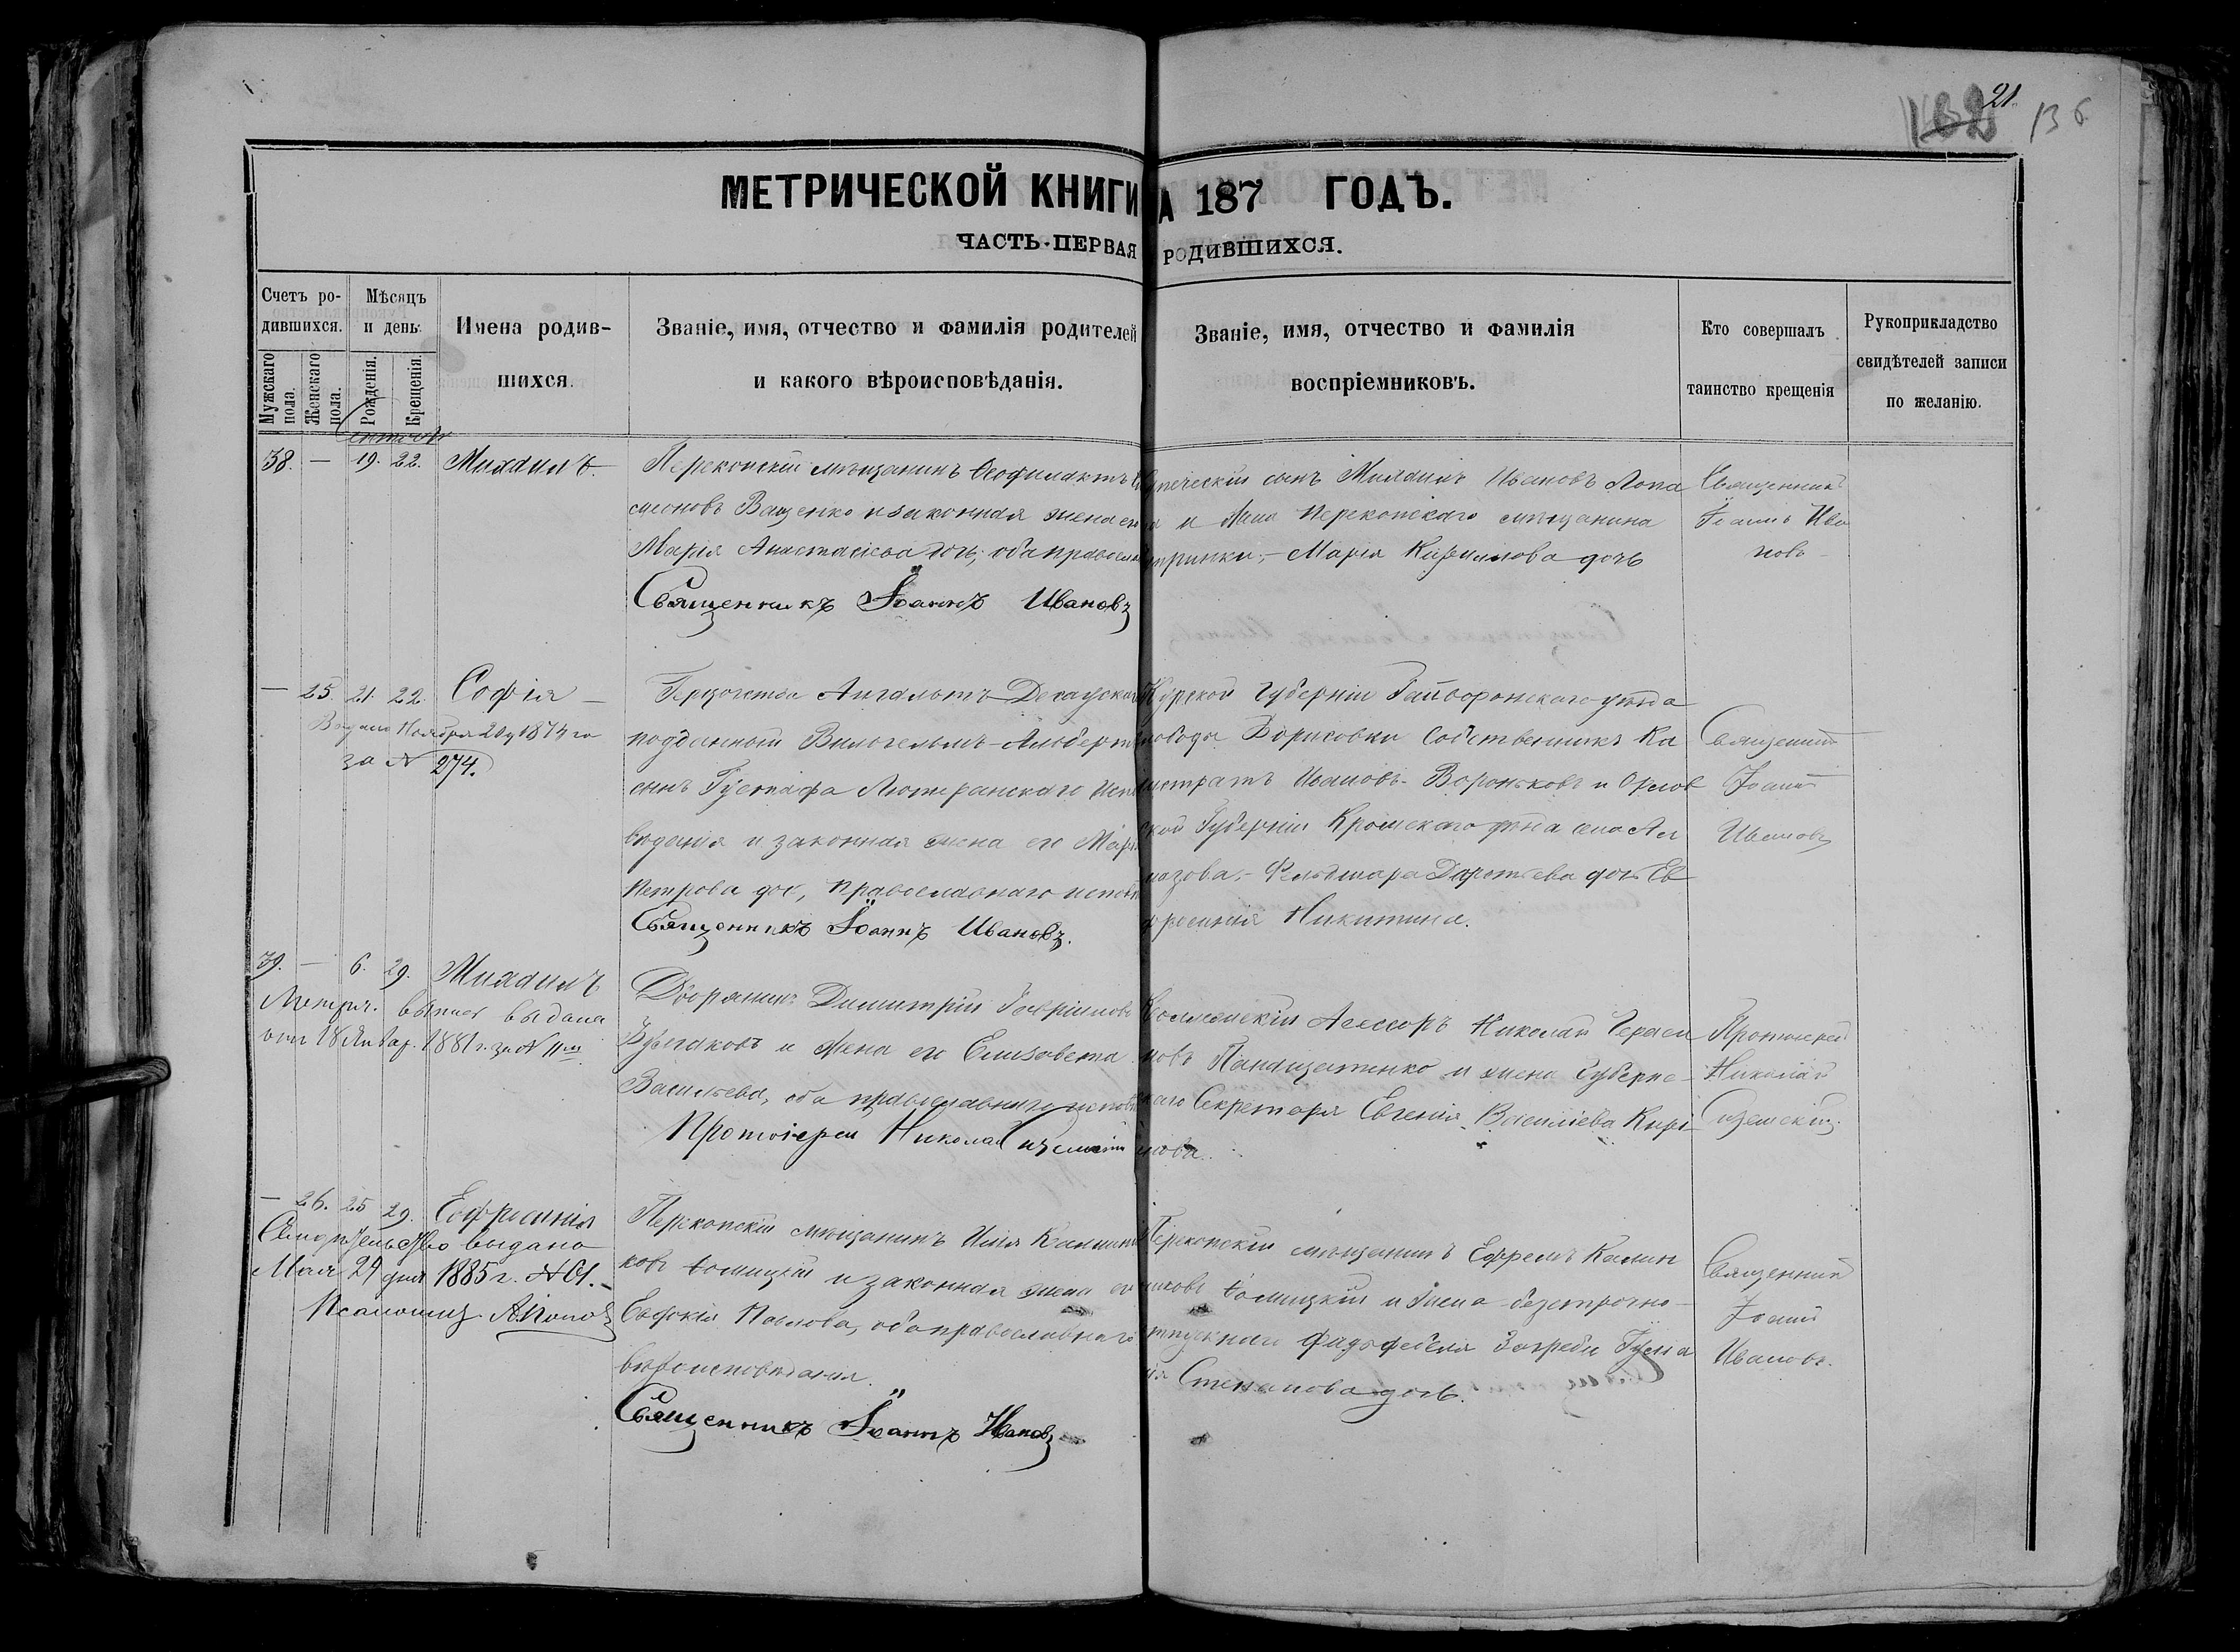 21.
132 136
МЕТРИЧЕСКОЙ КНИГИ
А 187 ГОДЪ.
ЧАСТЬ ПЕРВАЯ
РОДИВШИХСЯ.
Счетъ ро-
дившихся.
Мужскаго пола.
Женскаго пола.
Мѣсяцъ
и день.
Рожденія.
Крещенія.
Имена родив-
шихся.
Званіе, имя, отчество и фамилія родителей
и какого вѣроисповѣданія.
Званіе, имя, отчество и фамилія
воспріемниковъ.
Кто совершалъ
таинство крещенія
Рукоприкладство
свидѣтелей записи
по желанію.
38. — 19. 22. Михаилъ.
Перекопскій мѣщанинъ Ѳеофилактъ
меоновъ Ващенко и законная жена его
Марія Анастасіева дочь, оба православн
Священникъ Іоаннъ Ивановъ
сынъ Михаилъ Ивановъ Лопа
и Перекопскаго мѣщанина
Марія Кириллова дочь
Священникъ
Іоаннъ Ива
новъ
— 25. 21. 22. София —
Выдано Ноября 20 1874 го
за № 274.
Герцогства Ангальтъ Десаускаго
подданный Вильгельмъ-Альбертъ
сынъ Густафа Лютеранскаго испо
вѣданія и законная жена его Марія
Петрова дочь, православнаго исповѣ
Священникъ Іоаннъ Ивановъ.
Курской Губерніи Гайворонскаго уѣзда
Борисовки Собственникъ Ка
листратъ Ивановъ Вороньковъ и Орлов
ской Губерніи Кромскаго уѣзда села Ал
мазова, Фельдшера Доротѣева дочь Ев
фросинія Никитина.
Священникъ
Іоаннъ
Ивановъ
39. — 6. 29. Михаилъ
Метрич. выпись выдана
отъ 18 Январ. 1881 г. за № 11м
Дворянинъ Димитрій Гавриловъ
Булгаковъ и жена его Елисавета
Васильева, оба православнаго исповѣ
Протоіерей Николай
Коллежскій Асессоръ Николай Гераси
мовъ Панащатенко и жена Губернс
каго Секретаря Евгенія Василіева Кири
лова.
Протоіерей
Николай
— 26. 25 29. Ефросинія
Свидѣтельство выдано
Мая 29 дня 1885 г. № 61.
Псаломщ. А. Попов
Перекопскій мѣщанинъ Илія Калини
ковъ Ѳомицкій и законная жена его
Евфокія Павлова, оба православнаго
вѣроисповѣданія.
Священникъ Іоаннъ Ивановъ
Перекопскій мѣщанинъ Ефремъ Калин
никовъ Ѳомицкій и жена безсрочно-
отпускнаго Фидьфебеля
Степанова дочь.
Священникъ
Іоаннъ
Ивановъ.